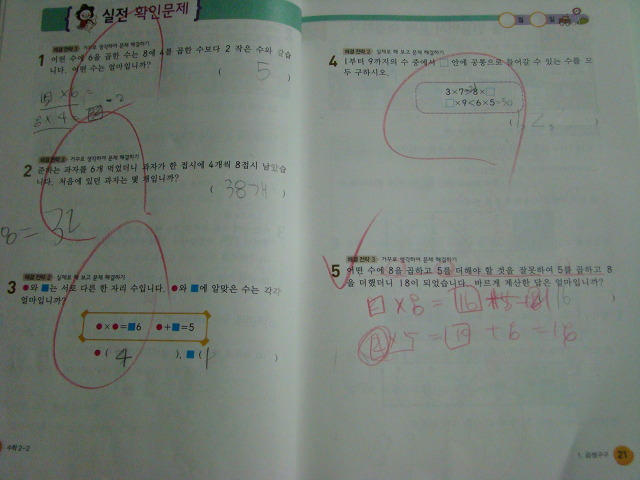 실전 확인문제
해결 전략 3 거꾸로 생각하여 문제 해결하기
1 어떤 수에 6을 곱한 수는 8에 4를 곱한 수보다 2 작은 수와 같습
니다. 어떤 수는 얼마입니까?
( 5 )
×6=
8×4 -2
해결 전략 3 거꾸로 생각하여 문제 해결하기
2 준하는 과자를 6개 먹었더니 과자가 한 접시에 4개씩 8접시 남았습
니다. 처음에 있던 과자는 몇 개입니까?
( 38개 )
8=32
해결 전략 2 실제로 해 보고 문제 해결하기
3 ●와 ■는 서로 다른 한 자리 수입니다. ●와 ■에 알맞은 수는 각각
얼마입니까?
●×●=■6 ●+■=5
● ( 4 ), ■ ( 1 )
수학 2-2
월 일
해결 전략 2 실제로 해 보고 문제 해결하기
4 1부터 9까지의 수 중에서 □ 안에 공통으로 들어갈 수 있는 수를 모
두 구하시오.
3×7>8×□
□×9<6×5
( 1, 2, )
해결 전략 3 거꾸로 생각하여 문제 해결하기
5 어떤 수에 8을 곱하고 5를 더해야 할 것을 잘못하여 5를 곱하고 8
을 더했더니 18이 되었습니다. 바르게 계산한 답은 얼마입니까?
×8=16
×5= +8=18
1. 곱셈구구 21